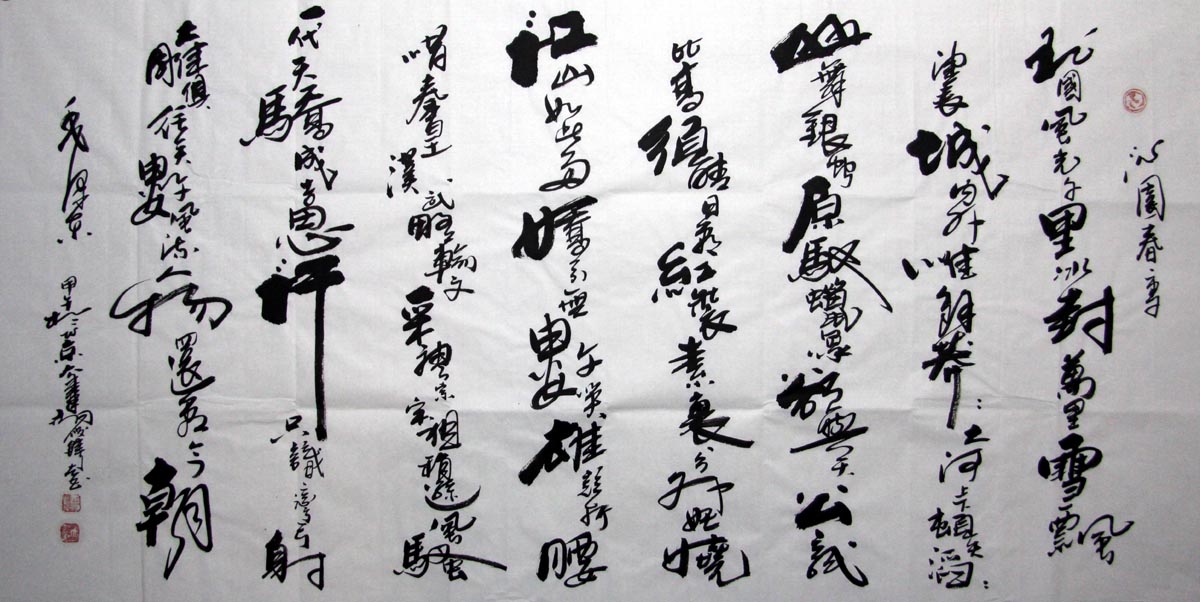 沁園春雪
北國風光千里冰封萬里雪飄
望長城內外惟餘莽〻大河上下頓失滔〻
山舞銀蛇原馳蠟象欲與天公試
比高須晴日看紅裝素裹分外妖嬈
江山如此多嬌引無數英雄競折腰
惜秦皇漢武略輸文采唐宗宋祖稍遜風騷
一代天驕成吉思汗只識彎弓射
大雕俱往矣數風流人物還看今朝
毛澤東
甲午